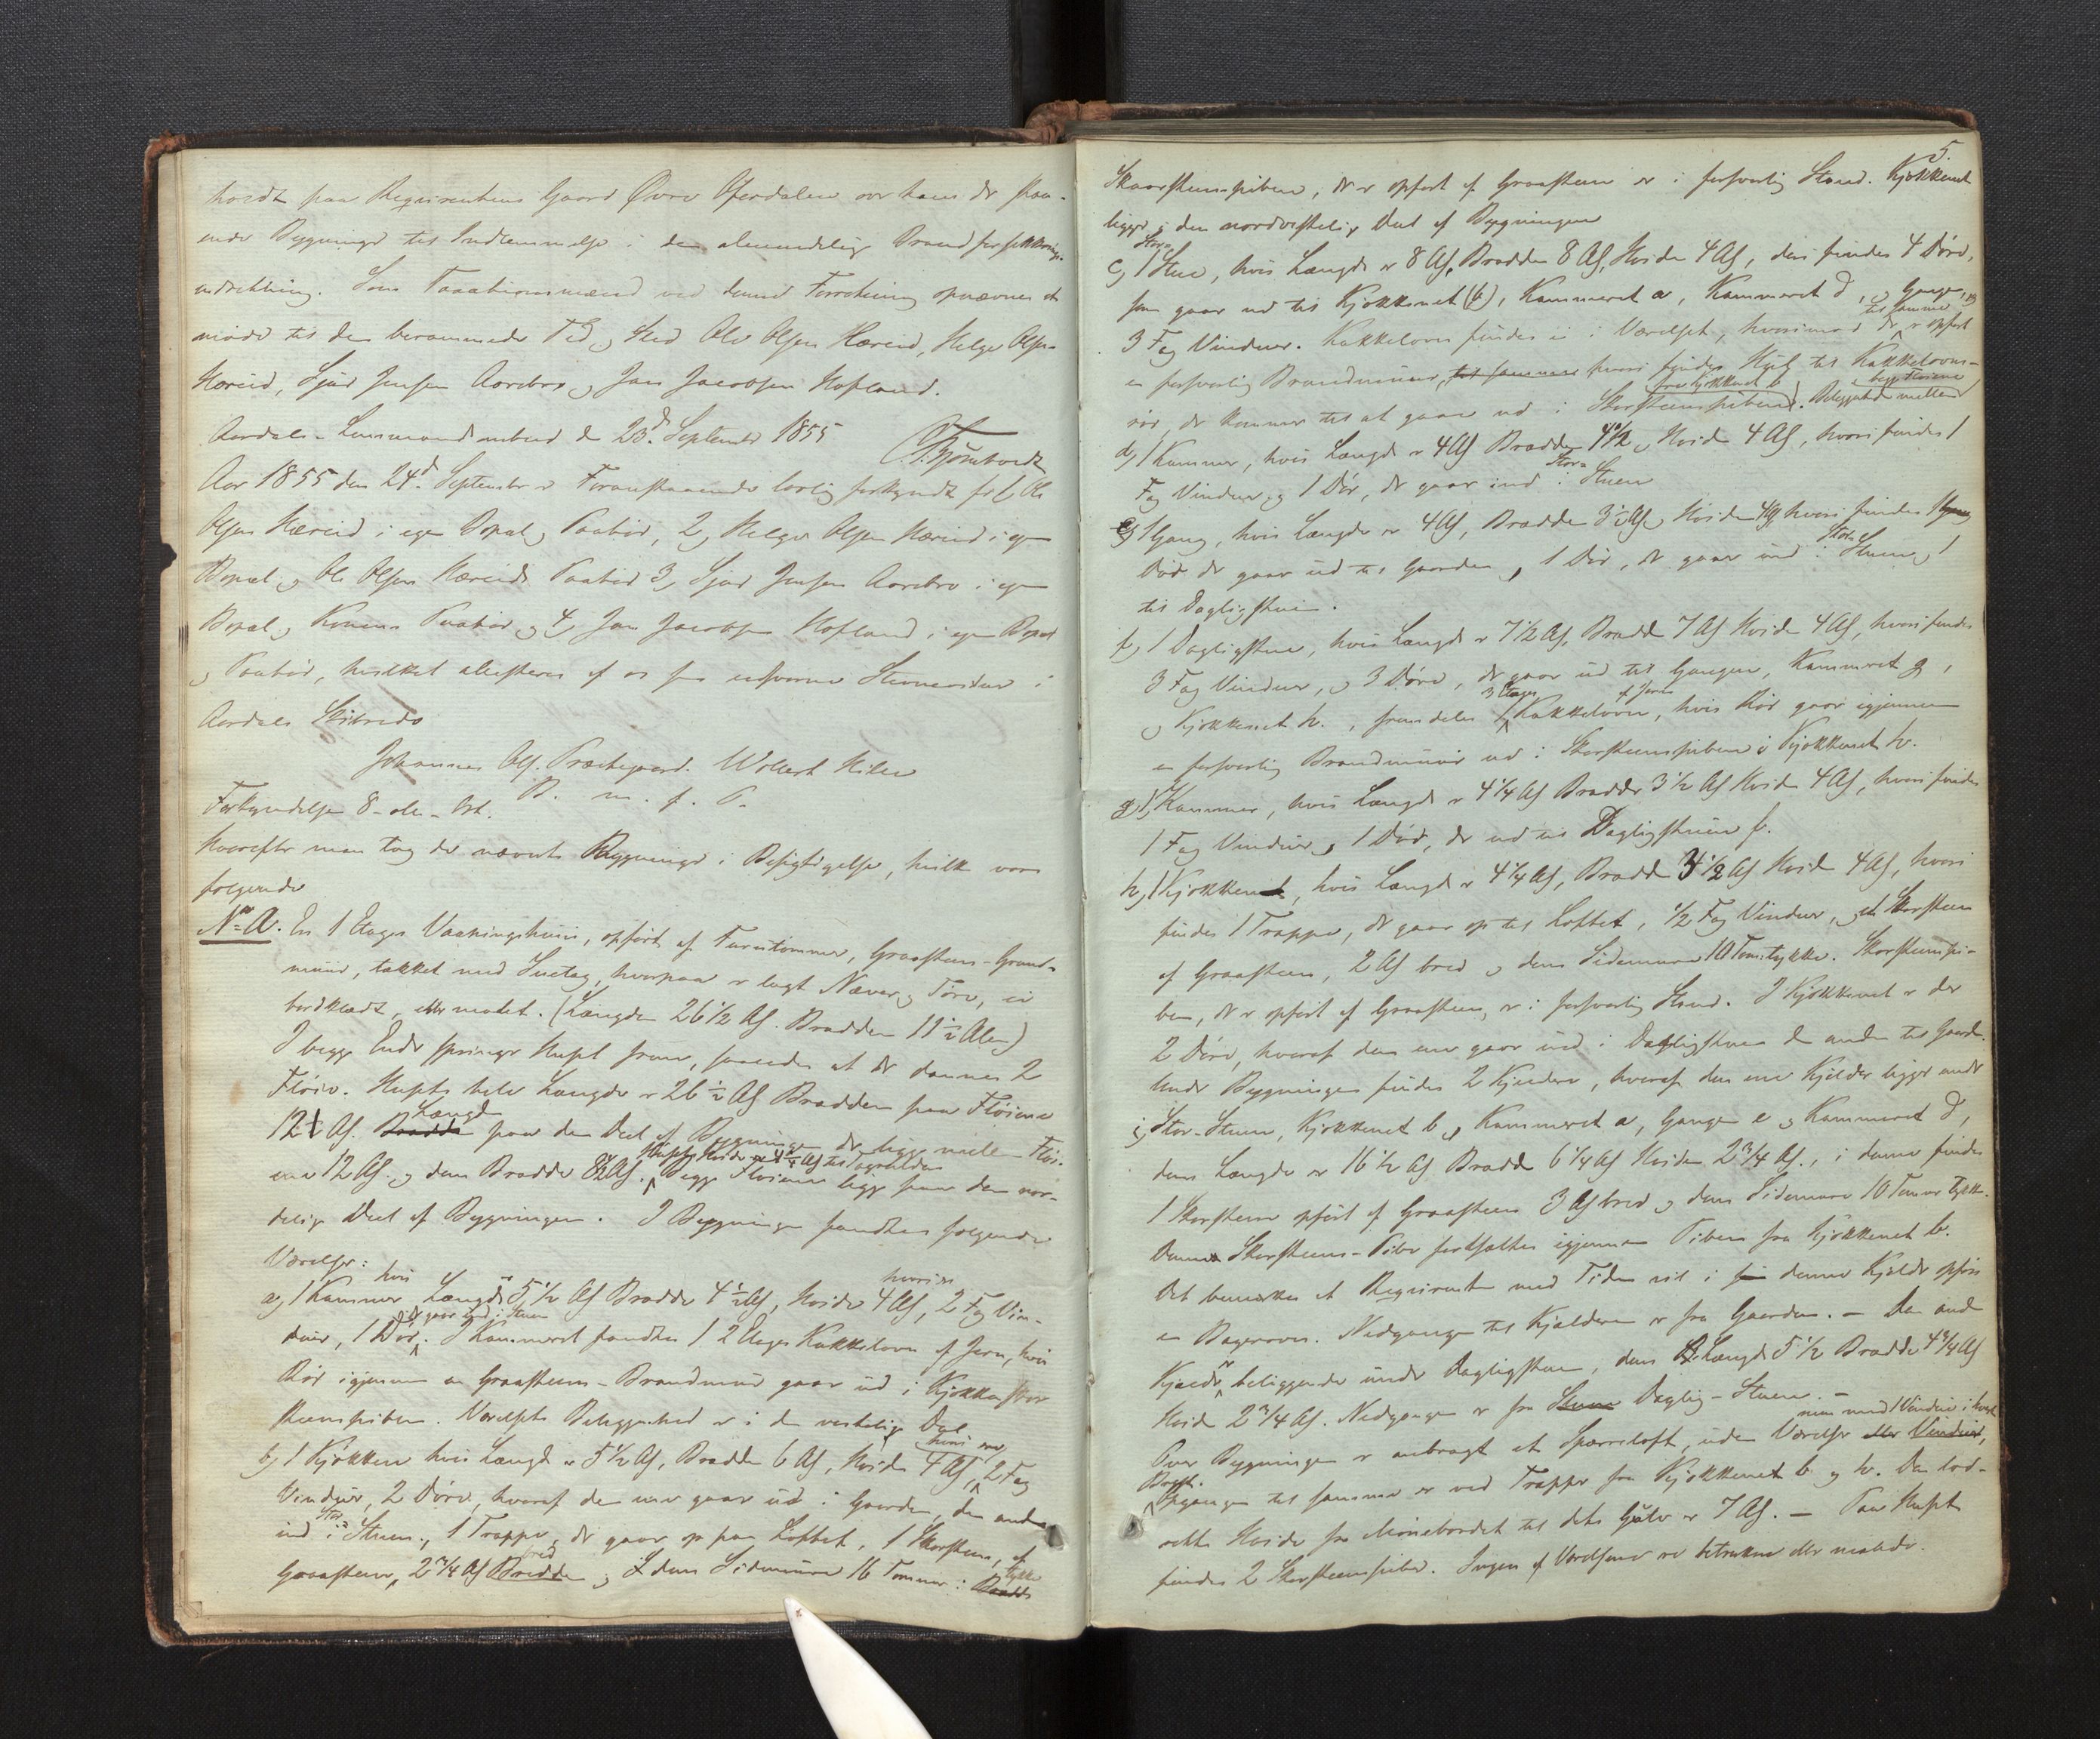 holdt paa Requirentens Gaard Øvre Ofredalen over hans der staa-
ende Bygninger til Indlemmelse i den almindelige Brandforsikkrings-
indretning. Som Taxationsmænd ved denne Forretning opnævnes at
møde til den berammede Tid og Sted Ole Olsen Hæreid, Helge Olsen
Hæreid, Sjur Jensen Aarebro og Jan Jacobsen Hofland.
Aardals-Lensmandsembed d 23d September 1855
Aar 1855 den 24d September er Foranstaaende lovlig forkyndt for 1, Ole
Olsen Hæreid i egen Bopæl og Paahør, 2, Helge Olsen Hæreid i egen
Bopæl og Ole Olsen Hæreids Paahør 3, Sjur Jensen Aarebro i egen
Bopæl og Konens Paahør og 4, Jan Jacobsen Hofland i egen Bopæl
og Paahør, hvilket attesteres af os som eedsvorne Stevnevidner i
Aardals Skibrede
Johannes Ols. Præstegaard. Wollert
B. m. f. P.
Forkyndelse 8- ott.
Hvorefter man tog de nævnte Bygninger i Besigtigelse, hvilke vare
følgende
No A. En 1 Etages Vaaningshuus, opført af Furutømmer, Graasteens-Grund-
muur, takket med Suetag, hvorpaa er lagt Næver og Törv, ei
bordklædt eller malet. (Længden 26 1/2 Al. Bredden 11 1/2 Alen)
I begge Ender springer Huset frem, saaledes at der dannes 2
Fløie. Husets hele Længde er 26 1/2 Al Bredden paa Fløiene
12 Al. Længde paa den Deel af Bygningen der ligge mellem Fløi-
ene 12 Al. og dens Bredde 8 1/2 Al. Husets Høide er 4 1/4 Al til Begge Fløiene ligge paa den nor-
delige Deel af Bygningen. I Bygningen fandtes følgende
Værelser:
a, 1 Kammer hvis Længde er 5 1/2 Al Bredde 4 1/2 Al, Høide 4 Al, hvori er 2 Fag Vin-
duer, 1 Dør, der gaar ind i Stuen. I Kammeret fandtes 1 2 Etages Kakkelovn af Jern, hvis
Rør igjennem en Graasteens-Brandmuur gaar ud i Kjøkkenskor-
steenspiben. Værelsets Beliggenhed er i den vestelige Del
b, 1 Kjøkken hvis Længde er 5 1/2 Al, Bredden 6 Al, Høiden 4 Al, hvori er 2 Fag
Vinduer, 2 Døre, hvoraf den ene gaar ud i Gaarden, den anden
ind i Stor Stuen, 1 Trappe, der gaar op paa Loftet, 1 Skorsteen, af
Graasteen, 2 3/4 Al bred Bredde og dens Sidemure 16 Tommer i tykke Bredde
5.
Skaarsteenspiben, der er opført af Graasteen er i forsvarlig Stand. Kjøkkenet
ligger i den nordvestelige Deel af Bygningen
c, 1 Stor Stue, hvis Længde er 8 Al, Bredden 8 Al, Høiden 4 Al, deri findes 4 Døre,
som gaar ud til Kjøkkenet (b), Kammeret a, Kammeret d, og Gangen, og
3 Fag Vinduer. Kakkelovn findes ei i Værelset, hvorimod der til samme er opført
en forsvarlig Brandmuur, til samme hvori findes Hul til Kakkelovns-
rør, der kommer til at gaae ud i Skorsteenspiben fra Kjøkkenet b. Beliggende mellem begge Fløiene
d, 1 Kammer, hvis Længde er 4 Al Bredden 4 1/2 og Høide 4 Al, hvori findes 1
Fag Vinduer, og 1 Dør, der gaar ind i Stor Stuen
e, 1 Gang, hvis Længde er 4 Al, Bredden 3 1/2 Al og Høiden 4 Al hvori findes 1
Dør der gaar ud til Gaarden, 1 Dør, der gaar ind i Stor Stuen og 1
til Dagligstuen.
f, 1 Dagligstue, hvis Længde er 7 1/2 Al, Bredde 7 Al Høide 4 Al, hvori findes
3 Fag Vinduer, og 3 Døre, der gaar ud til Gangen, Kammeret g,
og Kjøkkenet h., fremdeles 1 3 Etages Kakkelovn af Jern, hvis Rør gaar igjennem
en forsvarlig Brandmuur ud i Skorsteenspiben i Kjøkkenet h.
g, 1 Kammer, hvis Længde er 4 1/4 Al Bredde 3 1/2 Al Høide 4 Al, hvori findes
1 Fag Vinduer og 1 Dør, der ud til Dagligstuen f.
h, 1 Kjøkken, hvis Længde er 4 1/4 Al, Bredde 3 1/2 Al Høide 4 Al, hvori
findes 1 Trappe, der gaar op til Loftet, 1/2 Fag Vinduer, og et Skorsteen
af Graasteen, 2 Al bred og dens Sidemure 10 Tom: tykke. Skorsteenspi-
ben, der er opført af Graasteen, er i forsvarlig Stand. I Kjøkkenet er der
2 Døre, hvoraf den ene gaar ind i Dagligstuen d anden til Gaarden.
Under Bygningen findes 2 Kjeldere, hvoraf den ene Kjelder ligger under
i, Stor-Stuen, Kjøkkenet b, Kammeret a, Gangen e og Kammeret d,
dens Længde er 16 1/2 Al Bredde 6 1/4 Al Høiden 2 3/4 Al., i denne findes
1 Skorsteen opført af Graasteen 3 Al bred og dens Sidemure 10 Tommer tykke.
Denne Skorsteens-Pibe fortsættes igjennem Piben fra Kjøkkenet b.
Det bemærkes at Requirenten med Tiden vil i denne Kjelder opføre
en Bagerovn. Nedgangen til Kjælderen er fra Gaarden. – Den anden
Kjælder er beliggende under Dagligstuen, dens Længde 5 1/2 Bredde 4 3/4 Al
Høide 2 3/4 Al. Nedgangen er fra Stuen Daglig-Stuen. –
Over Bygningen er anbragt et Sparreloft, uden Værelser eller Vinduer, men med 1 Vindue i hver
Opgangen til samme er ved Trapper fra Kjøkkenet b og h. Den lod-
rette Høide fra Mønebordet til dets Gulv er 7 Al. – Paa Huset
findes 2 Skorsteenspiber. Ingen af Værelserne er betrukne eller malede.